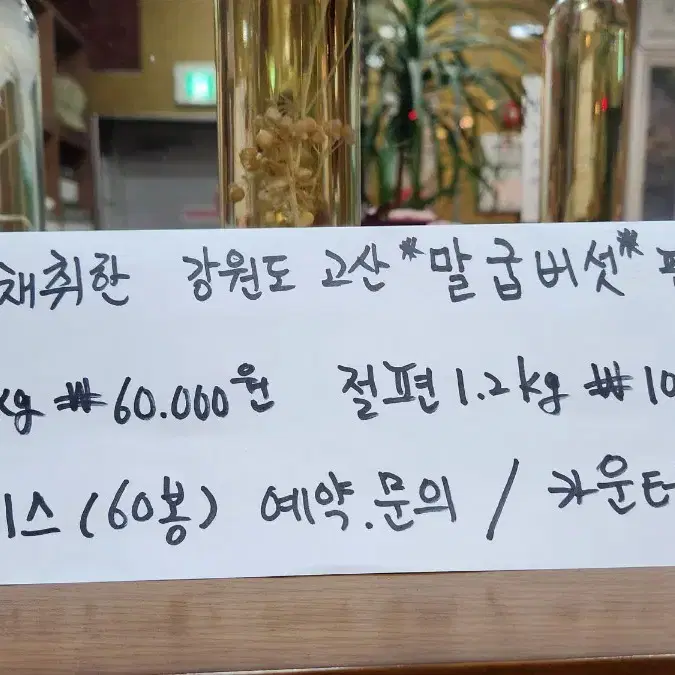 채취한 강원도 고산 *말굽버섯*
kg ₩60.000원 절편 1.2kg ₩10
스(60봉) 예약.문의 / 카운터